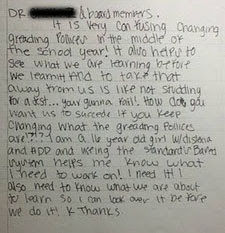 DR. & board members,
It is very confusing Changing
greading Pollices in the middle of
the school year! It also helps to
see what we are learning before
we learn it. And to take that
away from us is like not studding
for a test... your gunna fail! How do you
want us to succede if you keep
Changing what the greading Pollices
are?!? I am a 16 year old girl w/dislexia
and ADD and useing the Standards Based
system helps me know what
I need to work on! I need it! I
also need to know what we are about
to learn so i can look over it before
we do it! K Thanks.